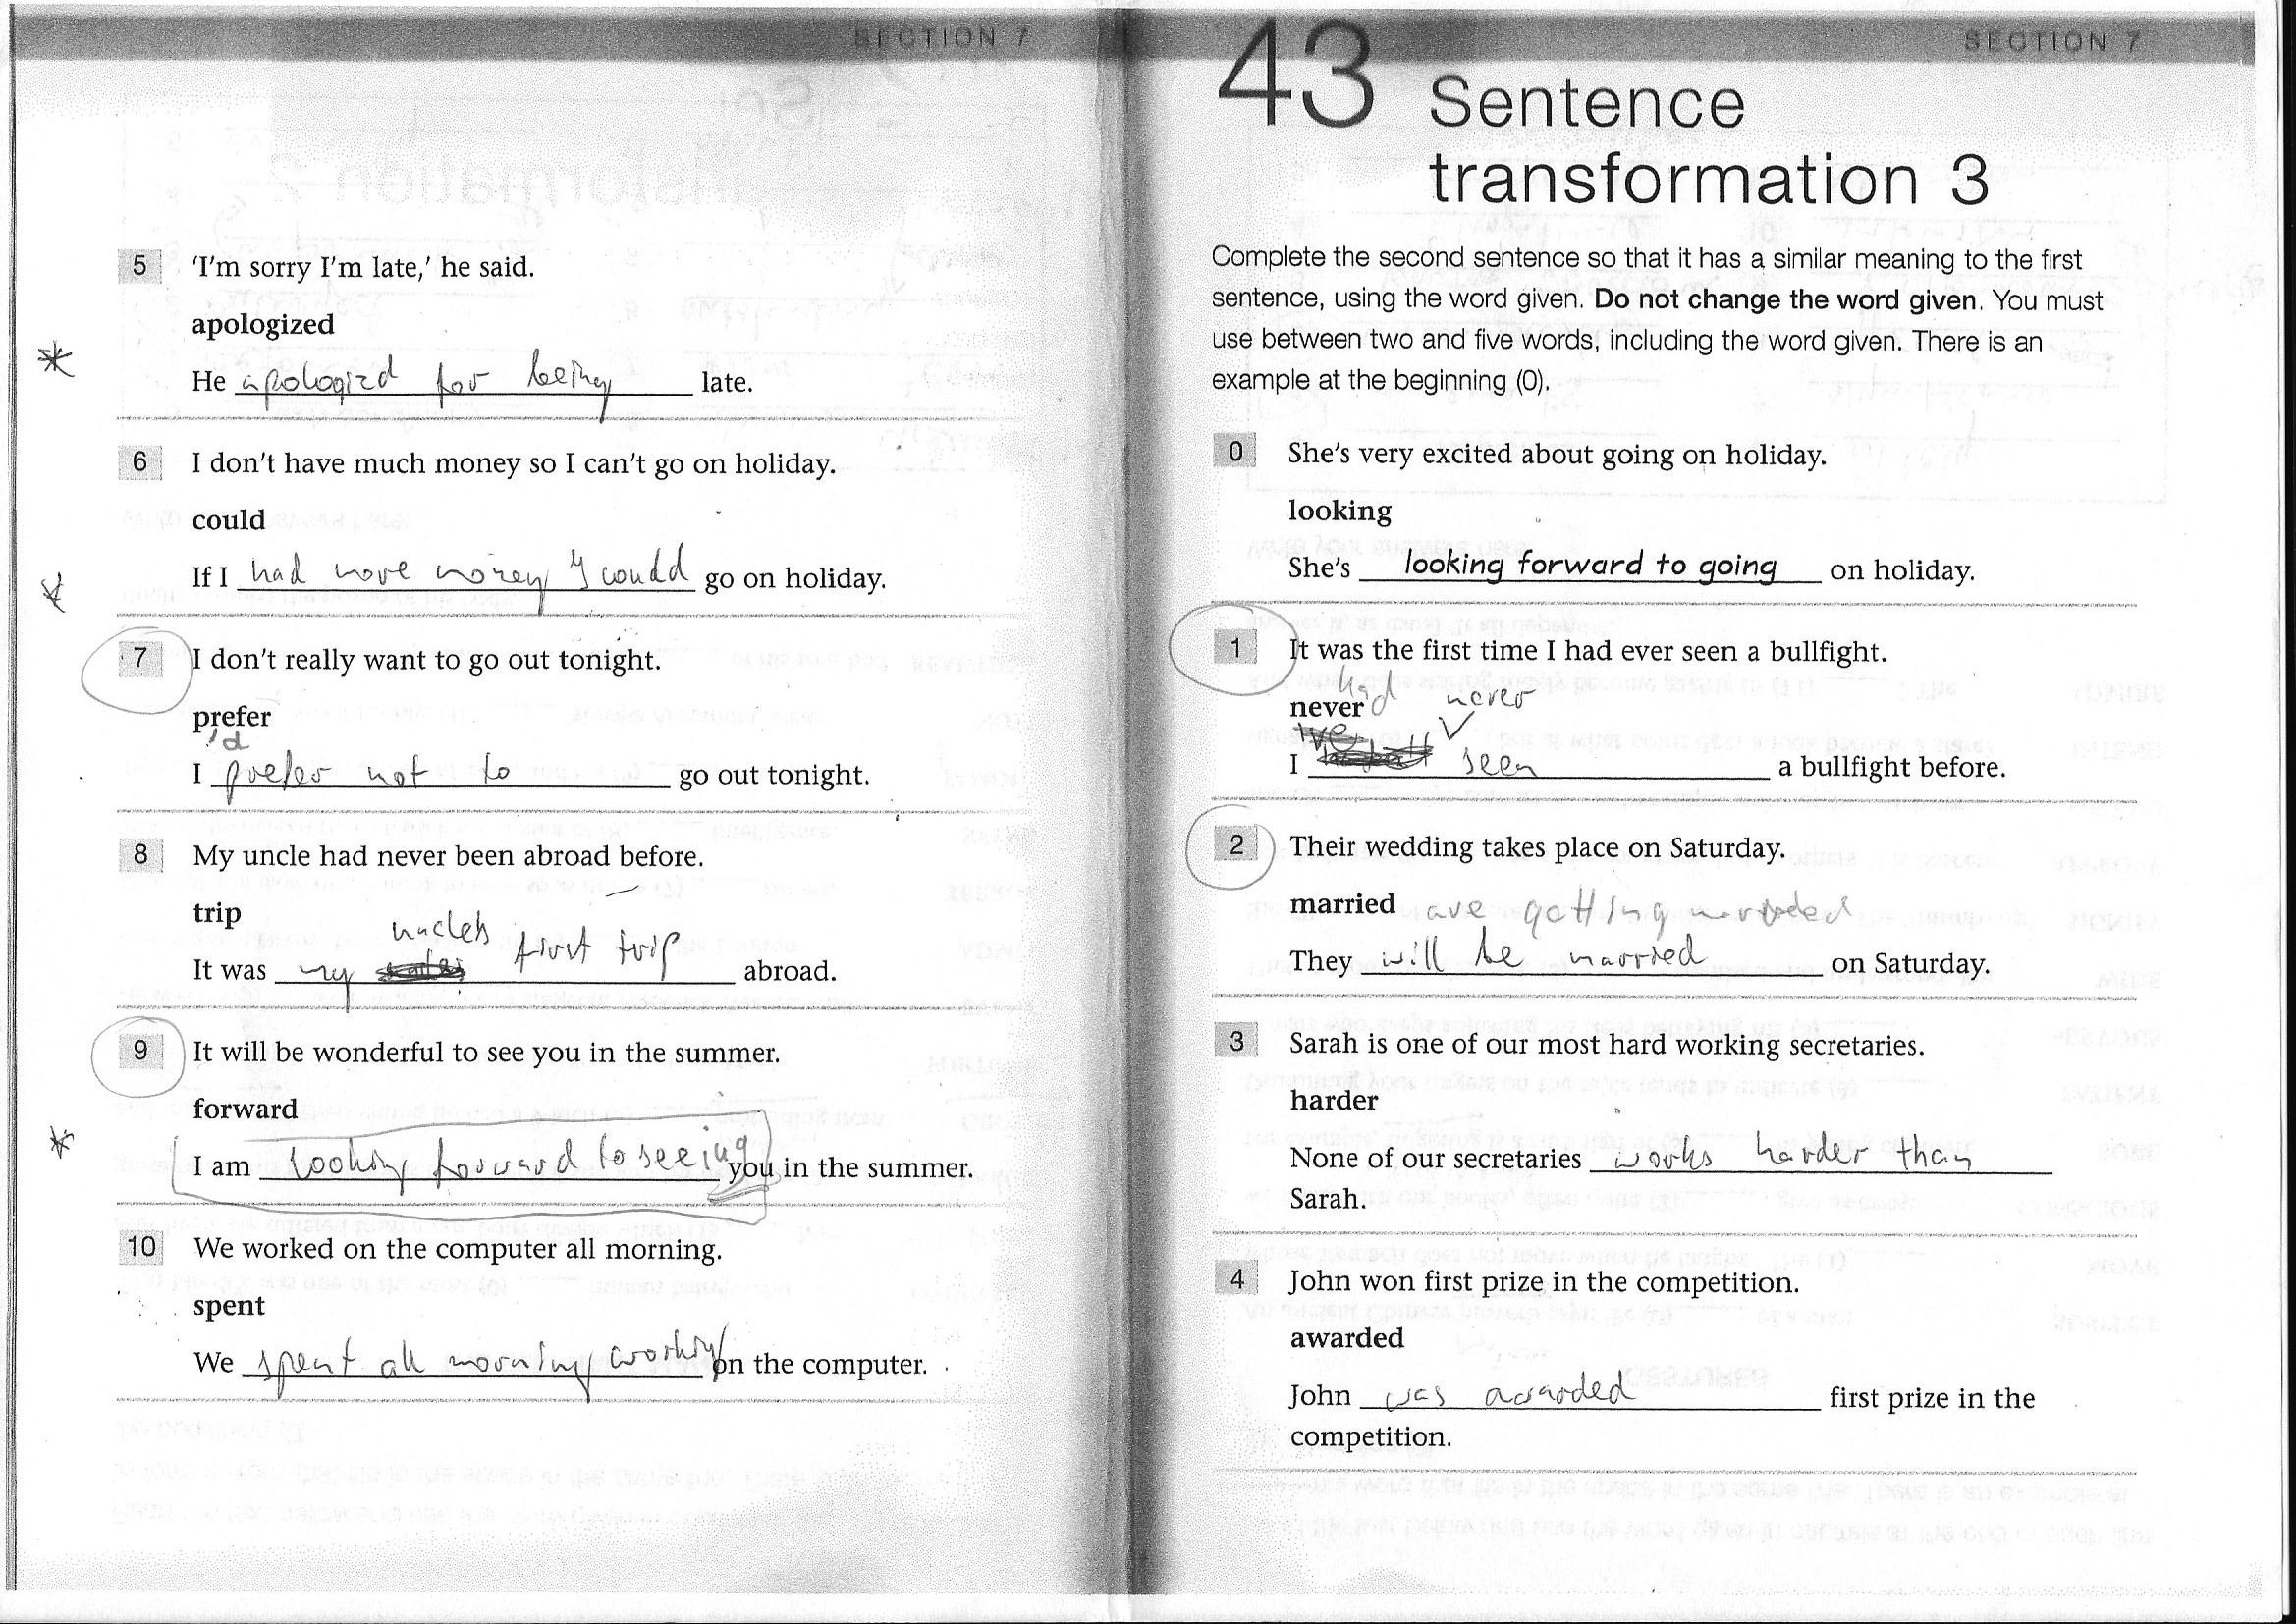 SECTION 7
5 'I'm sorry I'm late,' he said.
apologized
He apologizd for being late.
6 I don't have much money so I can't go on holiday.
could
If I had more money I could go on holiday.
7 I don't really want to go out tonight.
prefer
'd
I prefer not to go out tonight.
8 My uncle had never been abroad before.
trip
uncles first trip
It was my abroad.
9 It will be wonderful to see you in the summer.
forward
I am looking forward to seeing you in the summer.
10 We worked on the computer all morning.
spent
We spent all morning working on the computer.
SECTION 7
43 Sentence
transformation 3
Complete the second sentence so that it has a similar meaning to the first
sentence, using the word given. Do not change the word given. You must
use between two and five words, including the word given. There is an
example at the beginning (0).
0 She's very excited about going on holiday.
looking
She's looking forward to going on holiday.
1 It was the first time I had ever seen a bullfight.
had never
never
I seen a bullfight before.
2 Their wedding takes place on Saturday.
married are getting
They will be married on Saturday.
3 Sarah is one of our most hard working secretaries.
harder
None of our secretaries works harder than
Sarah.
4 John won first prize in the competition.
awarded
John was awarded first prize in the
competition.